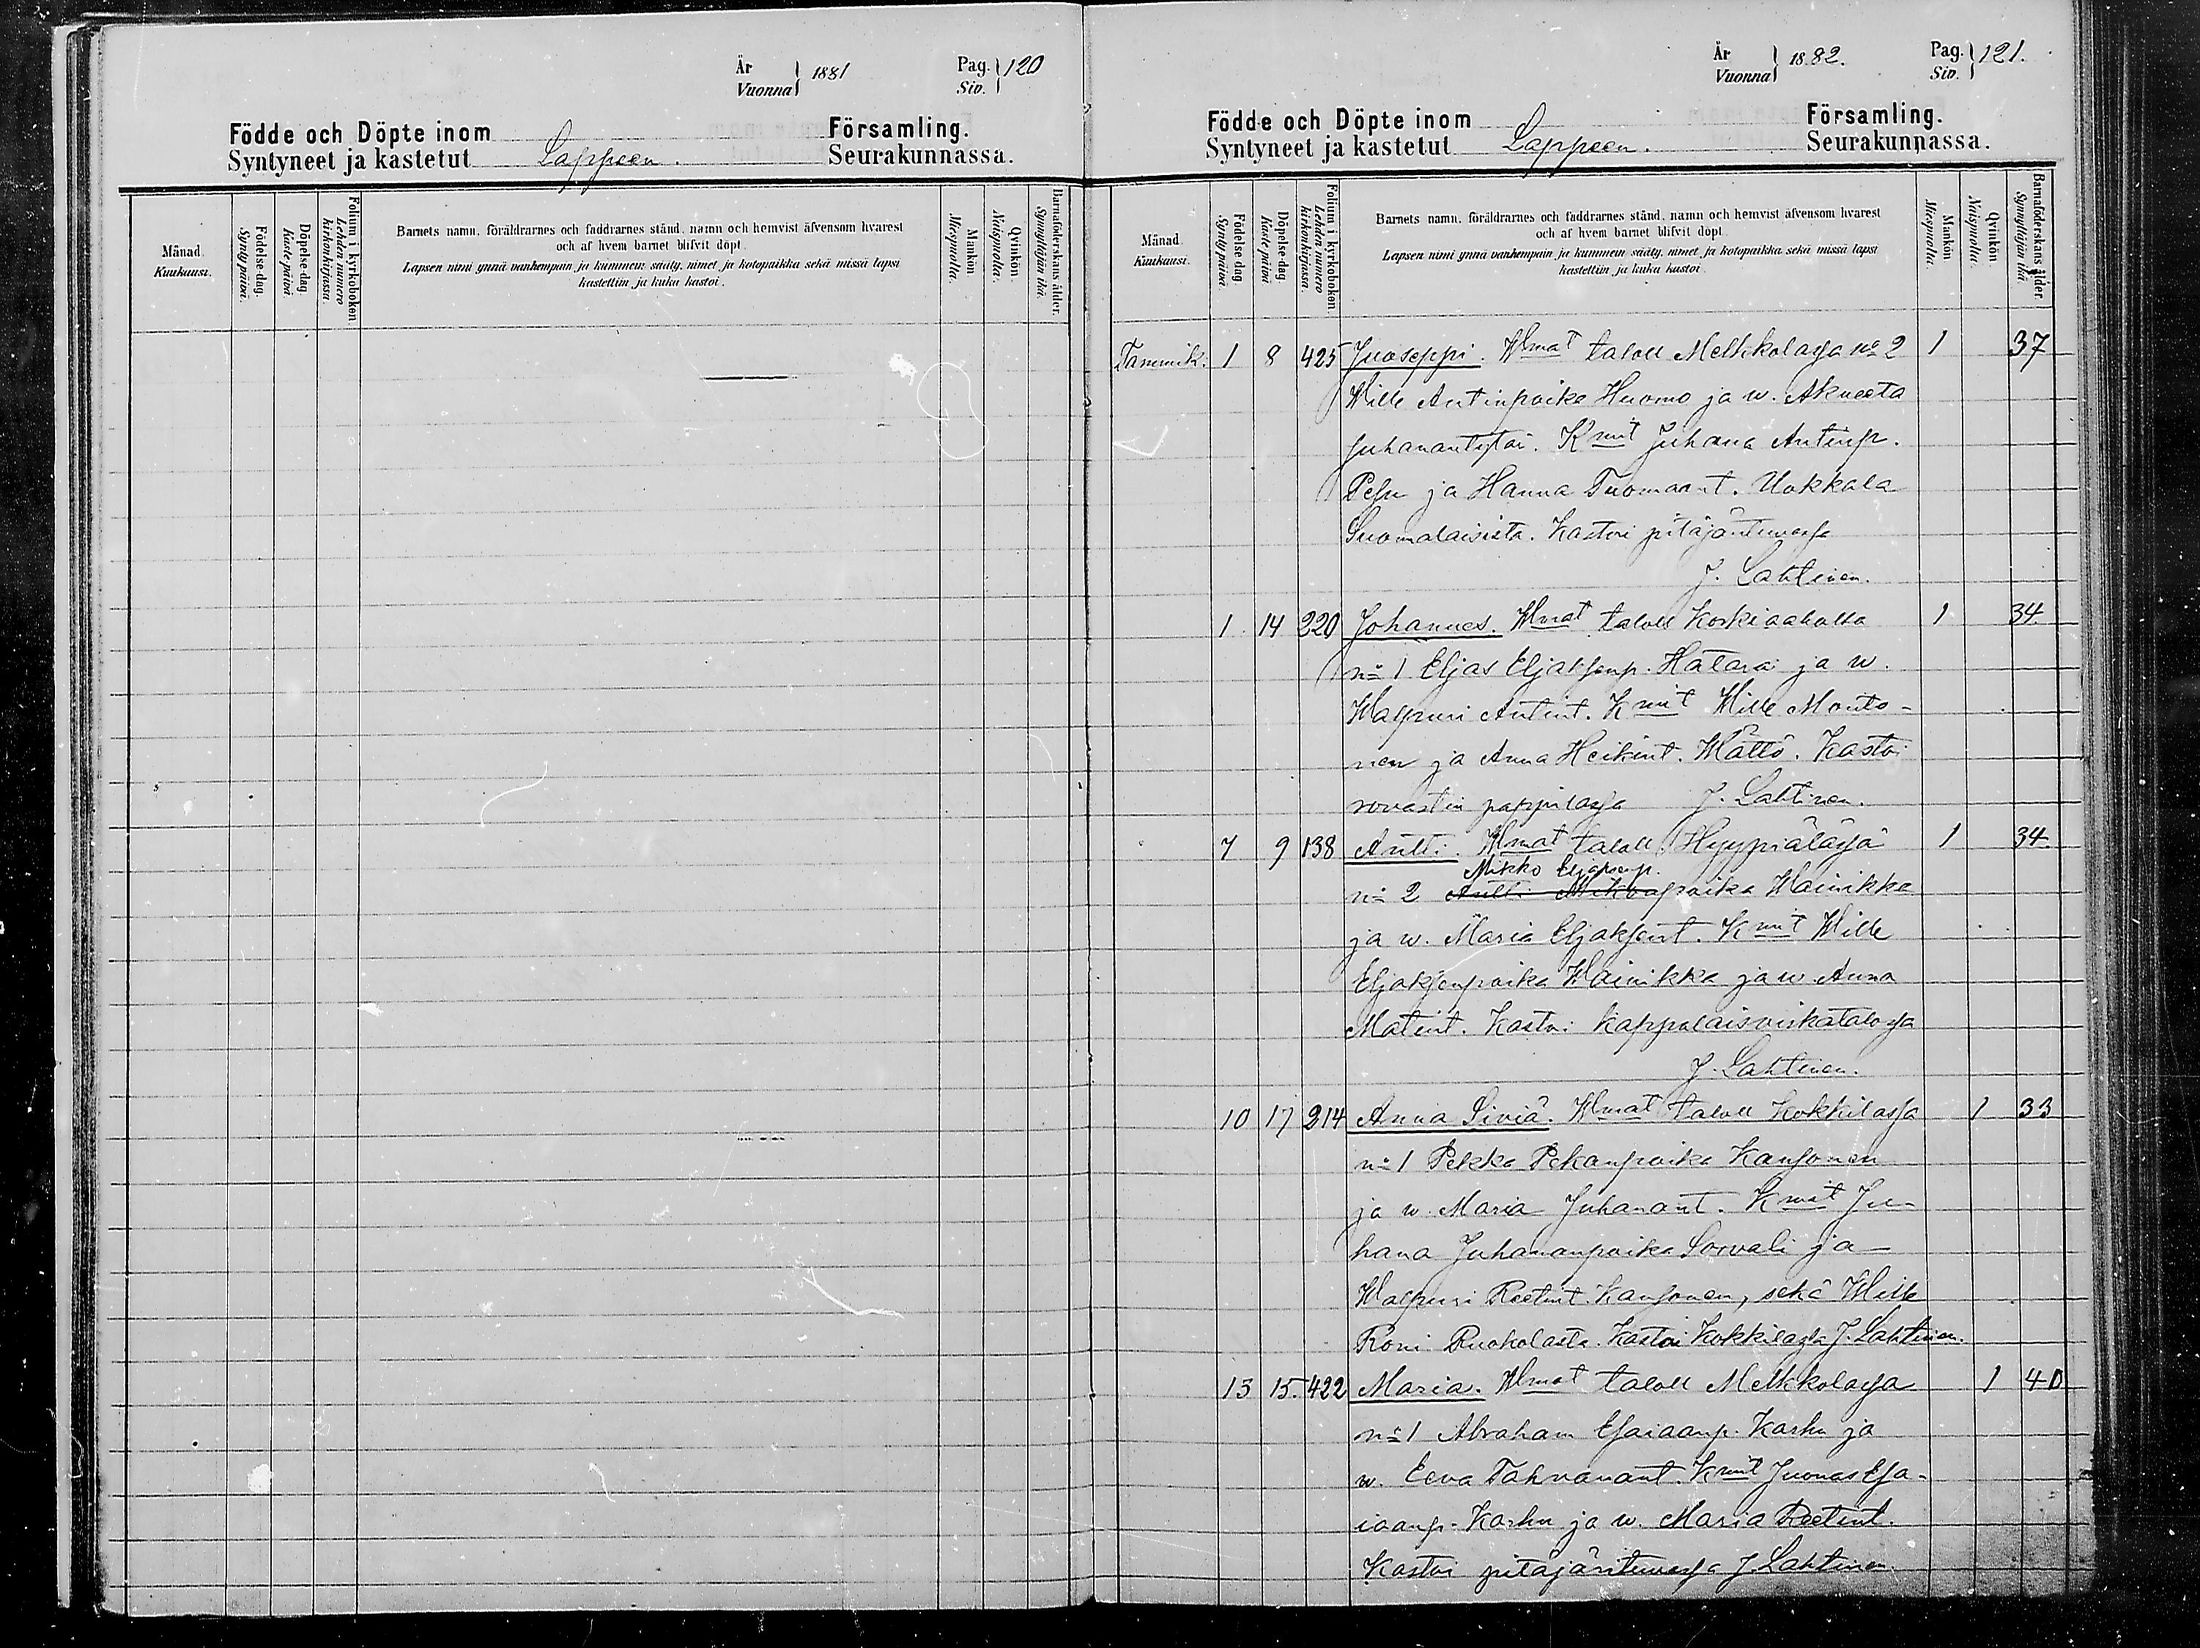 År
Vuonna 1881
Pag.
Siv. 120
Födde och Döpte inom Församling.
Syntyneet ja kastetut Lappeen. Seurakunnassa.
Månad.
Kuukausi.
Födelse dag.
Synty päivä.
Döpelse dag.
Kaste päivä
Folium i kyrkoboken
Lehden numero
kirkonkirjassa.
Barnets namn, föräldrarnes och faddrarnes stånd, namn och hemvist äfvensom hvarest
och af hvem barnet blifvit döpt.
Lapsen nimi ynnä vanhempain ja kummein sääty, nimet ja kotopaikka sekä missä lapsi
kastettiin ja kuka kastoi.
Mankön
Miespuolia.
Qvinkön.
Naispuolia.
Barnaföderskans ålder.
Synnyttäjän ikä.
År
Vuonna 1882.
Pag.
Siv. 121.
Födde och Döpte inom Församling.
Syntyneet ja kastetut Lappeen. Seurakunnassa.
Månad
Kuukausi.
Födelse dag
Synty päivä.
Döpelse dag.
Kaste päivä
Folium i kyrkoboken
Lehden numero
kirkonkirjassa.
Barnets namn, föräldrarnes och faddrarnes stånd, namn och hemvist äfvensom hvarest
och af hvem barnet blifvit döpt.
Lapsen nimi ynnä vanhempain ja kummein sääty, nimet ja kotopaikka sekä missä lapsi
kastettiin ja kuka kastoi.
Mankön
Miespuolia.
Qvinkön.
Naispuolia
Barnaföderskans ålder.
Synnyttäjän ikä.
Tammik. 1 8 425 Juoseppi. Wmat taloll Melkkolassa no 2 1 37
Wille Antinpoika Huomo ja w. Akneeta
Juhanantytär. Kmit Juhana Antinp.
Pesu ja Hanna Tuomaant. Uokkala
Suomalaisista. Kastoi pitäjäntuwassa
J. Lahtinen.
1 14 220 Johannes. Wmat taloll Koskiaholla 1 34
no 1 Eljas Eljaksenp. Hatara ja w.
Walpuri Antint. Kmit Wille Monto-
nen ja Anna Heikint. Wättö. Kastoi
rovastin pappilassa J. Lahtinen.
7 9 138 Antti. Wmat taloll Hyypiälässä 1 34
Mikko Eljaksenp.
no 2 Antti Mikonpoika Wainikka
ja w. Maria Eljaksent. Kmit Wille
Eljaksenpoika Wainikka ja w Anna
Matint. Kastoi kappalaisvirkatalossa
J. Lahtinen.
10 17 214 Anna Siviä. Wmat taloll Kokkilassa 1 33
no 1 Pekka Pekanpoika Kansonen
ja w. Maria Juhanant. Kmit Ju-
hana Juhananpoika Sorvali ja
Walpuri Reetint. Kansonen, sekä Wille
Roni Ruokolasta. Kastoi Kokkilassa J. Lahtinen.
13 15. 422 Maria. Wmat taloll Melkkolassa 1 40
no 1 Abraham Esaiaanp. Karhu ja
w. Eeva Tahvanant. Kmit Juonas Esa-
iaanp. Karhu ja w. Maria Reetint.
Kastoi pitäjäntuwassa J. Lahtinen.